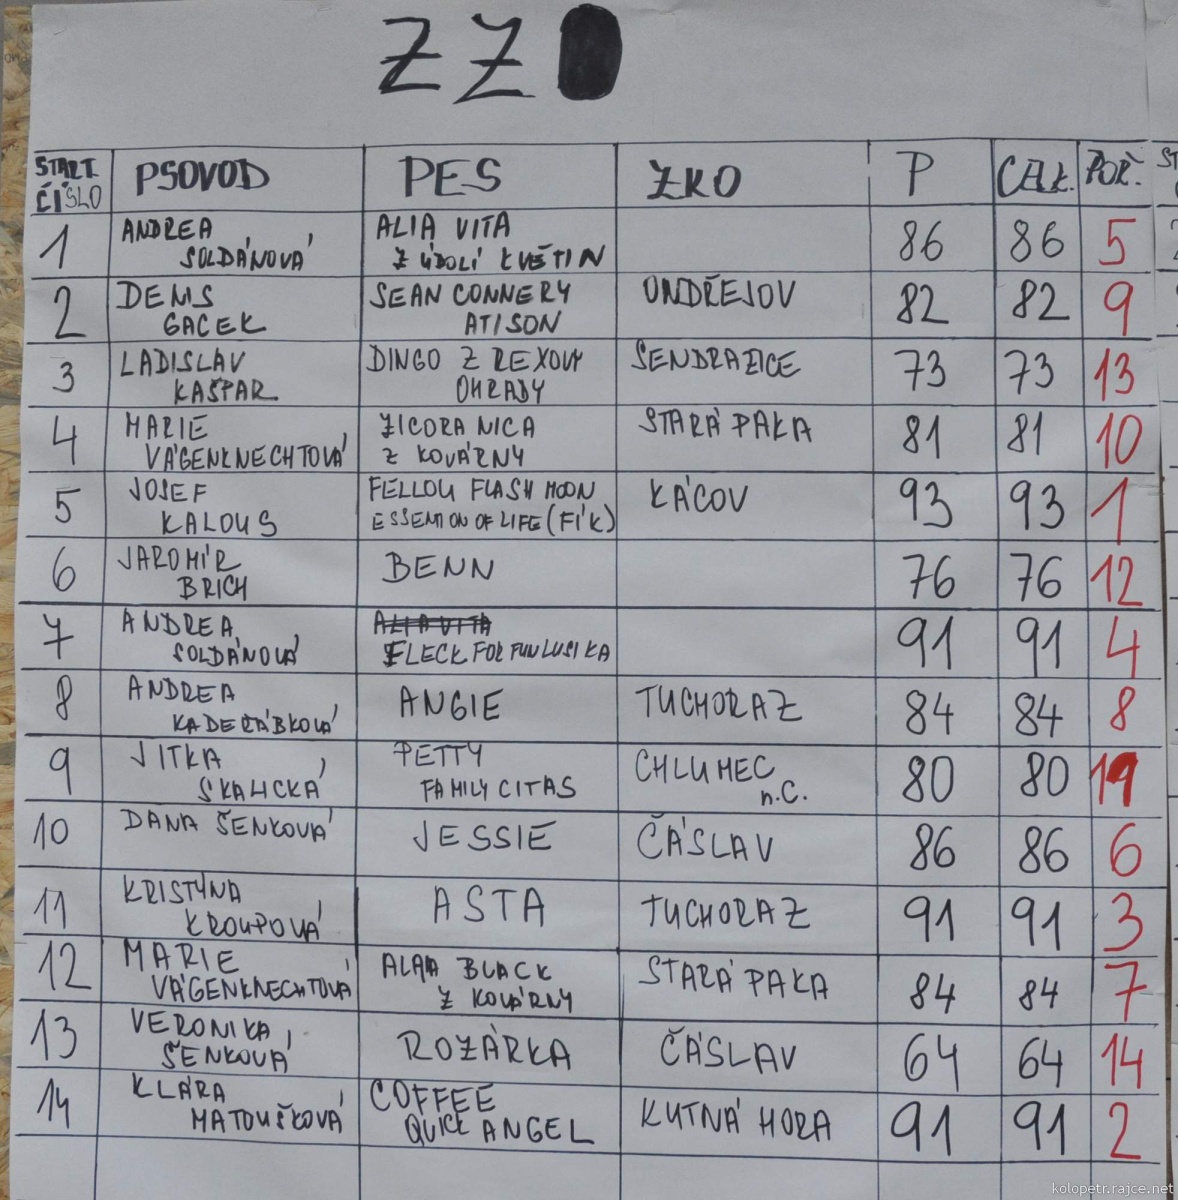 ZZO
START. ČÍSLO PSOVOD PES ZKO P CELK. POŘ.
1 ANDREA SOLDÁNOVÁ ALIA VITA Z ÚDOLÍ KVĚTIN 86 86 5
2 DENIS GACEK SEAN CONNERY ATISON ONDŘEJOV 82 82 9
3 LADISLAV KAŠPAR DINGO Z REXOVY OHRADY SENDRAŽICE 73 73 13
4 MARIE VÁGENKNECHTOVÁ ZICORA NICA Z KOVÁRNY STARÁ PAKA 81 81 10
5 JOSEF KALOUS FELLOU FLASH MOON ESSENTION OF LIFE (FÍK) KÁCOV 93 93 1
6 JAROMÍR BRICH BENN 76 76 12
7 ANDREA SOLDÁNOVÁ FLECK FOR FUN LUSIKA 91 91 4
8 ANDREA KADEŘÁBKOVÁ ANGIE TUCHORAZ 84 84 8
9 JITKA SKALICKÁ PETTY FAMILY CITAS CHLUMEC n.C. 80 80 11
10 DANA ŠENKOVÁ JESSIE ČÁSLAV 86 86 6
11 KRISTÝNA KROUPOVÁ ASTA TUCHORAZ 91 91 3
12 MARIE VÁGENKNECHTOVÁ BLACK Z KOVÁRNY STARÁ PAKA 84 84 7
13 VERONIKA ŠENKOVÁ ROZÁRKA ČÁSLAV 64 64 14
14 KLÁRA MATOUŠKOVÁ COFFEE QUICK ANGEL KUTNÁ HORA 91 91 2
kolopetr.rajce.net